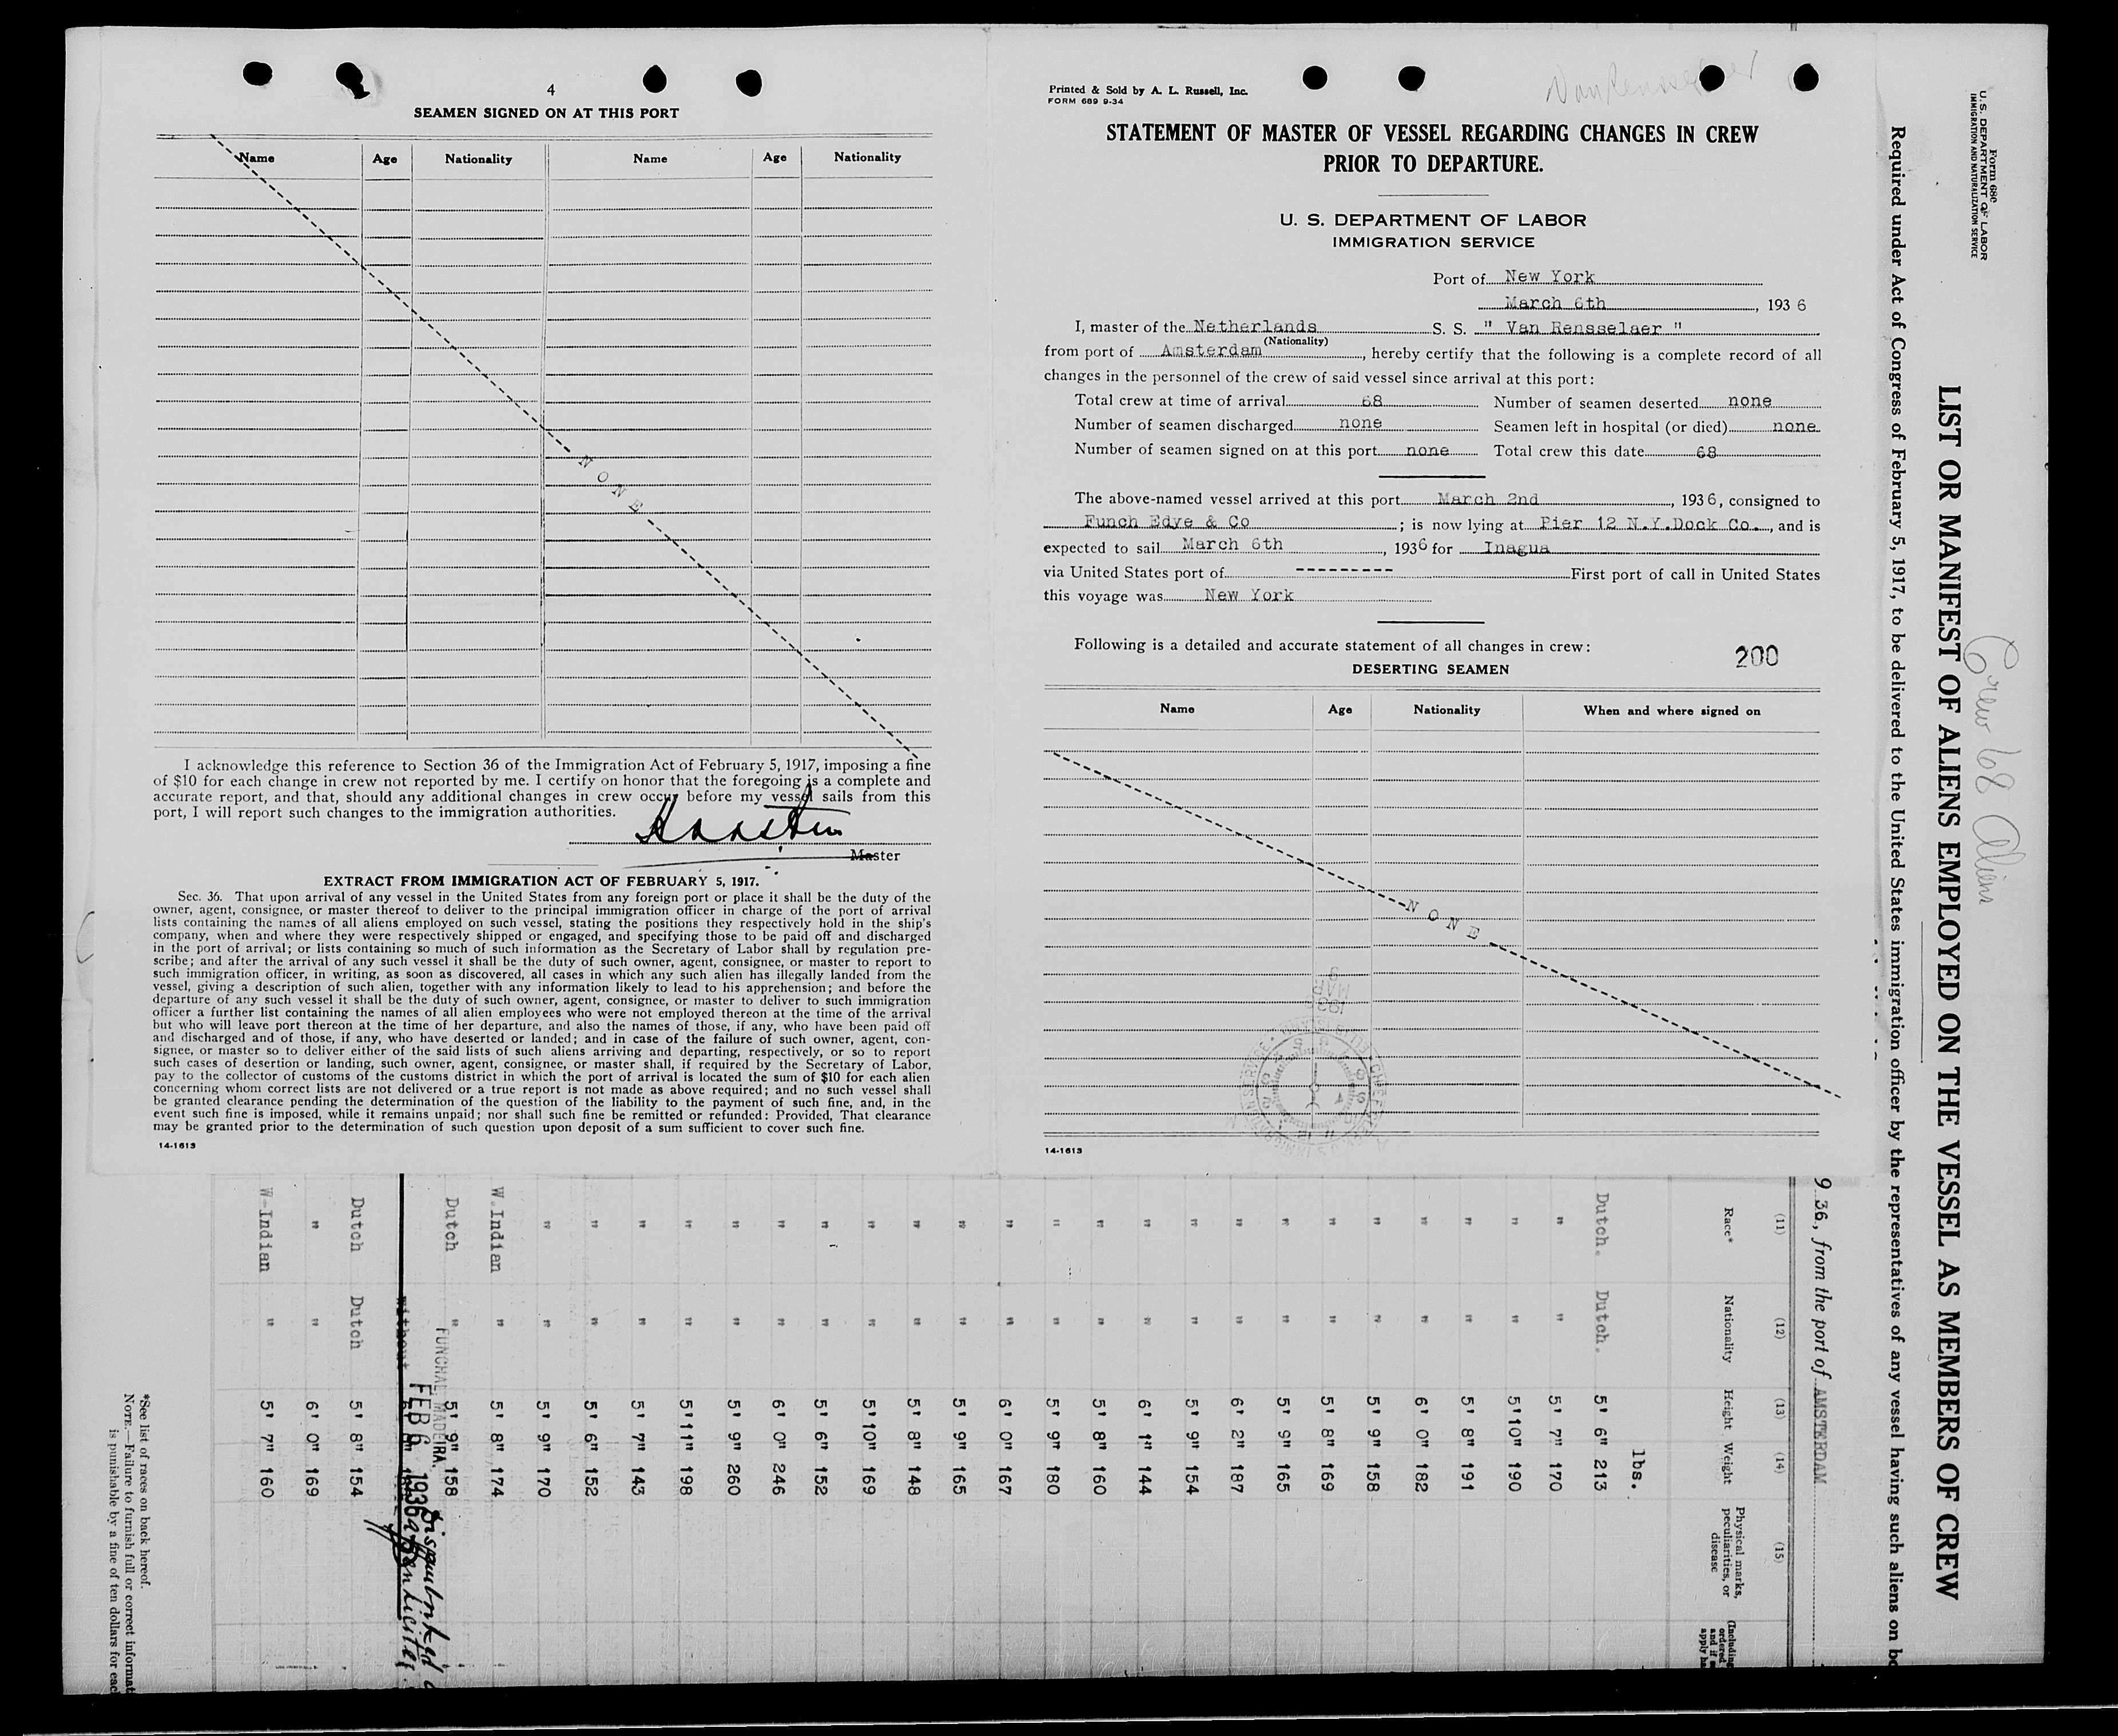 4
SEAMEN SIGNED ON AT THIS PORT
Name Age Nationality Name Age Nationality
NONE
I acknowledge this reference to Section 36 of the Immigration Act of February 5, 1917, imposing a fine
of $10 for each change in crew not reported by me. I certify on honor that the foregoing is a complete and
accurate report, and that, should any additional changes in crew occur before my vessel sails from this
port, I will report such changes to the immigration authorities.
Master
EXTRACT FROM IMMIGRATION ACT OF FEBRUARY 5, 1917.
Sec. 36. That upon arrival of any vessel in the United States from any foreign port or place it shall be the duty of the
owner, agent, consignee, or master thereof to deliver to the principal immigration officer in charge of the port of arrival
lists containing the names of all aliens employed on such vessel, stating the positions they respectively hold in the ship's
company, when and where they were respectively shipped or engaged, and specifying those to be paid off and discharged
in the port of arrival; or lists containing so much of such information as the Secretary of Labor shall by regulation pre-
scribe; and after the arrival of any such vessel it shall be the duty of such owner, agent, consignee, or master to report to
such immigration officer, in writing, as soon as discovered, all cases in which any such alien has illegally landed from the
vessel, giving a description of such alien, together with any information likely to lead to his apprehension; and before the
departure of any such vessel it shall be the duty of such owner, agent, consignee, or master to deliver to such immigration
officer a further list containing the names of all alien employees who were not employed thereon at the time of the arrival
but who will leave port thereon at the time of her departure, and also the names of those, if any, who have been paid off
and discharged and of those, if any, who have deserted or landed; and in case of the failure of such owner, agent, con-
signee, or master so to deliver either of the said lists of such aliens arriving and departing, respectively, or so to report
such cases of desertion or landing, such owner, agent, consignee, or master shall, if required by the Secretary of Labor,
pay to the collector of customs of the customs district in which the port of arrival is located the sum of $10 for each alien
concerning whom correct lists are not delivered or a true report is not made as above required; and no such vessel shall
be granted clearance pending the determination of the question of the liability to the payment of such fine, and, in the
event such fine is imposed, while it remains unpaid; nor shall such fine be remitted or refunded: Provided, That clearance
may be granted prior to the determination of such question upon deposit of a sum sufficient to cover such fine.
14-1613
Printed & Sold by A. L. Russell, Inc.
FORM 689 9-34
Van Rensselaer
STATEMENT OF MASTER OF VESSEL REGARDING CHANGES IN CREW
PRIOR TO DEPARTURE.
U. S. DEPARTMENT OF LABOR
IMMIGRATION SERVICE
Port of New York
March 6th, 1936
I, master of the Netherlands S. S. " Van Rensselaer "
(Nationality)
from port of Amsterdam, hereby certify that the following is a complete record of all
changes in the personnel of the crew of said vessel since arrival at this port:
Total crew at time of arrival 68 Number of seamen deserted none
Number of seamen discharged none Seamen left in hospital (or died) none
Number of seamen signed on at this port none Total crew this date 68
The above-named vessel arrived at this port March 2nd, 1936, consigned to
Funch Edye & Co; is now lying at Pier 12 N.Y.Dock Co., and is
expected to sail March 6th, 1936 for Inagua
via United States port of --------- First port of call in United States
this voyage was New York
Following is a detailed and accurate statement of all changes in crew:
200
DESERTING SEAMEN
Name Age Nationality When and where signed on
NONE
14-1613
Form 680
U. S. DEPARTMENT OF LABOR
IMMIGRATION AND NATURALIZATION SERVICE
Crew 68 Aliens
LIST OR MANIFEST OF ALIENS EMPLOYED ON THE VESSEL AS MEMBERS OF CREW
Required under Act of Congress of February 5, 1917, to be delivered to the United States immigration officer by the representatives of any vessel having such aliens on
9 36, from the port of AMSTERDAM
(11) (12) (13) (14) (15)
Race* Nationality Height Weight Physical marks, peculiarities, or disease
lbs.
Dutch. Dutch. 5' 6" 213
" " 5' 7" 170
" " 5'10" 190
" " 5' 8" 191
" " 6' 0" 182
" " 5' 9" 158
" " 5' 8" 169
" " 5' 9" 165
" " 6' 2" 187
" " 5' 9" 154
" " 6' 1" 144
" " 5' 8" 160
" " 5' 9" 180
" " 6' 0" 167
" " 5' 9" 165
" " 5' 8" 148
" " 5'10" 169
" " 5' 6" 152
" " 6' 0" 246
" " 5' 9" 260
" " 5'11" 198
" " 5' 7" 143
" " 5' 6" 152
" " 5' 9" 170
W.Indian " 5' 8" 174
Dutch " 5' 9" 158
FUNCHAL, MADEIRA.
FEB 6 1936
Dutch Dutch 5' 8" 154
" " 6' 0" 169
W-Indian " 5' 7" 160
*See list of races on back hereof.
NOTE.—Failure to furnish full or correct
is punishable by a fine of ten dollars for